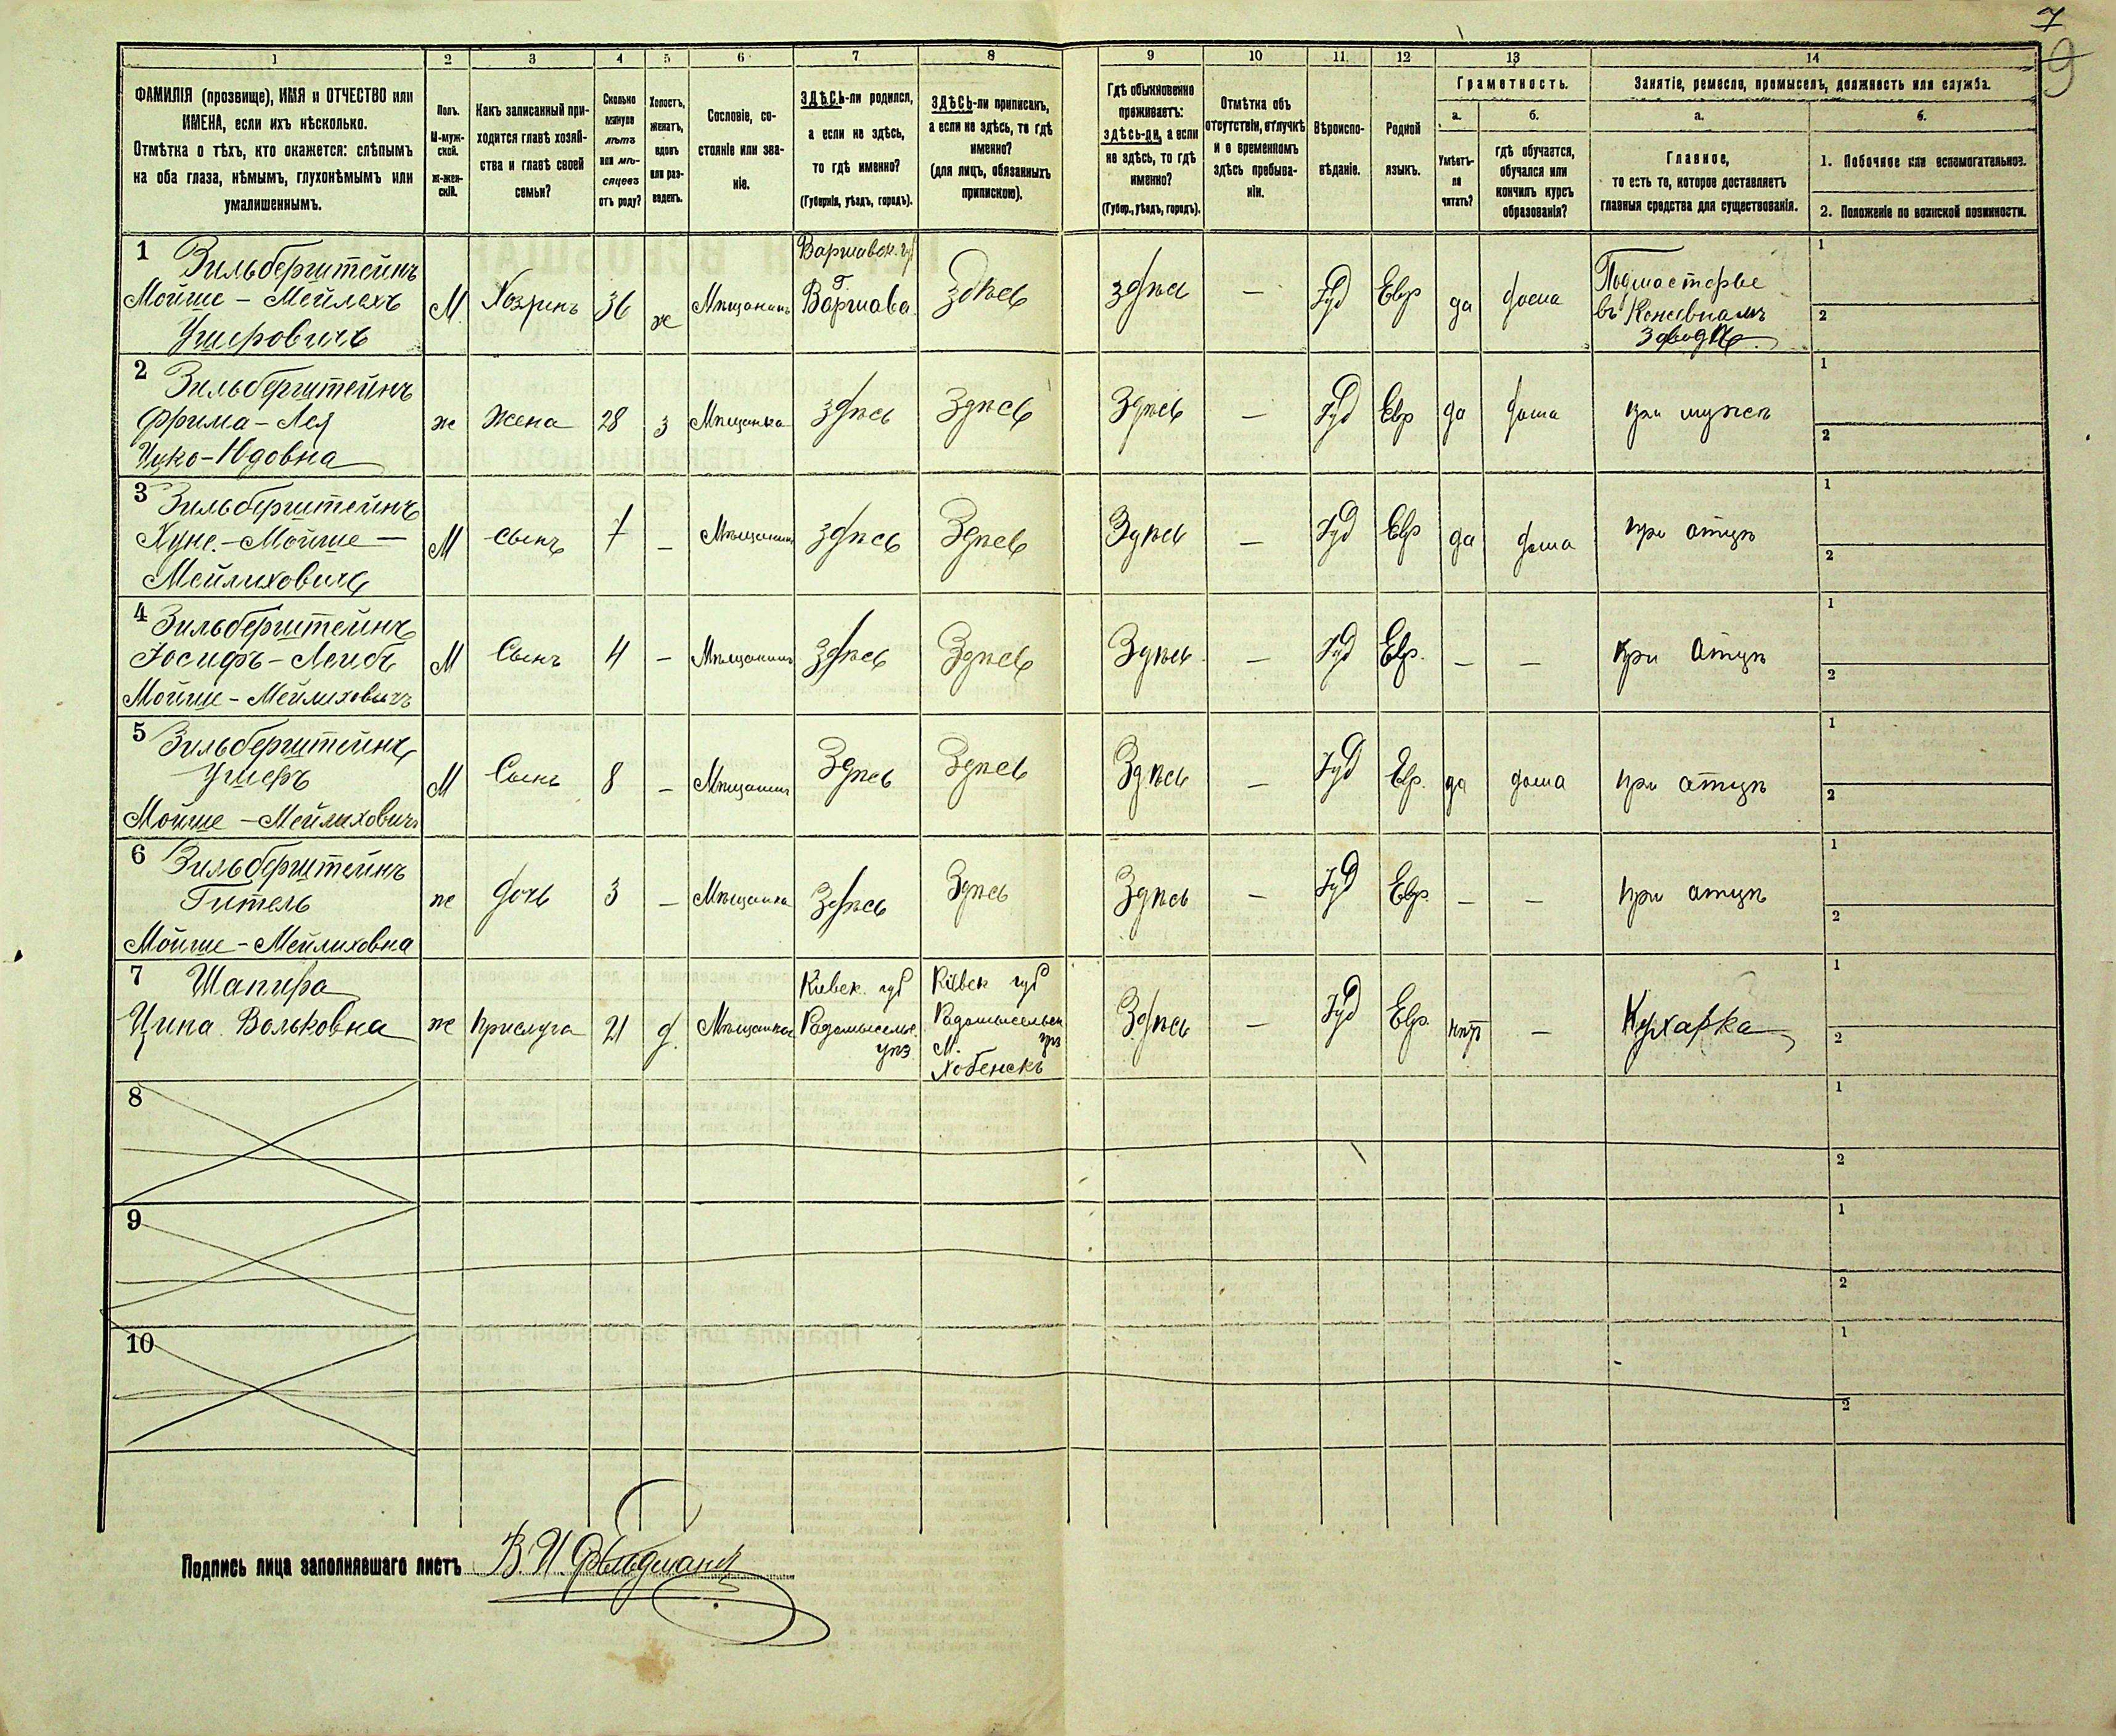 7
9
1 2 3 4 5 6 7 8 9 10 11 12 13 14
ФАМИЛІЯ (прозвище), ИМЯ и ОТЧЕСТВО или
ИМЕНА, если ихъ нѣсколько.
Отмѣтка о тѣхъ, кто окажется: слѣпымъ
на оба глаза, нѣмымъ, глухонѣмымъ или
умалишеннымъ.
Полъ.
М-муж-
ской.
Ж-жен-
скій.
Какъ записанный при-
ходится главѣ хозяй-
ства и главѣ своей
семьи?
Сколько
минуло
лѣтъ
или мѣ-
сяцевъ
отъ роду?
Холостъ,
женатъ,
вдовъ
или раз-
веденъ.
Сословіе, со-
стояніе или зва-
ніе.
ЗДѢСЬ-ли родился,
а если не здѣсь,
то гдѣ именно?
(Губернія, уѣздъ, городъ).
ЗДѢСЬ-ли приписанъ,
а если не здѣсь, то гдѣ
именно?
(для лицъ, обязанныхъ
припискою).
Гдѣ обыкновенно
проживаетъ:
здѣсь-ли, а если
не здѣсь, то гдѣ
именно?
(Губер., уѣздъ, городъ).
Отмѣтка объ
отсутствіи, отлучкѣ
и о временномъ
здѣсь пребыва-
ніи.
Вѣроиспо-
вѣданіе.
Родной
языкъ.
Грамотность.
а.
Умѣетъ-
ли
читать?
б.
гдѣ обучается,
обучался или
кончилъ курсъ
образованія?
Занятіе, ремесло, промыселъ, должность или служба.
а.
Главное,
то есть то, которое доставляетъ
главныя средства для существованія.
б.
1. Побочное или вспомогательное.
2. Положеніе по воинской повинности.
1 Зильберштейнъ
Мойше - Мейлехъ
Ушеровичъ
М Хозяинъ 36 ж Мѣщанинъ
Варшавск. губ
Г.
Варшава
здѣсь здѣсь — Іуд Евр да дома
Подмастерье
въ
заводѣ
1
2
2 Зильберштейнъ
Фрима - Лея
Ицко-Юдовна
ж Жена 28 з Мѣщанка здѣсь Здѣсь Здѣсь — Іуд Евр да дома при мужѣ
1
2
3 Зильберштейнъ
Хуне - Мойше -
Мейлиховичъ
М сынъ 7 — Мѣщанинъ здѣсь Здѣсь Здѣсь — Іуд Евр да дома при отцѣ
1
2
4 Зильберштейнъ
Іосифъ - Лейбъ
Мойше - Мейлиховичъ
М Сынъ 4 — Мѣщанинъ здѣсь Здѣсь Здѣсь — Іуд Евр. — — при отцѣ
1
2
5 Зильберштейнъ
Ушеръ
Мойше - Мейлиховичъ
М Сынъ 8 — Мѣщанинъ Здѣсь Здѣсь Здѣсь — Іуд Евр. да дома при отцѣ
1
2
6 Зильберштейнъ
Гитель
Мойше - Мейлиховна
ж дочь 3 — Мѣщанка Здѣсь Здѣсь Здѣсь — Іуд Евр. — — при отцѣ
1
2
7 Шапира
Ципа Вольковна
ж прислуга 21 д. Мѣщанка
Кіевск. губ
Радомысльс.
уѣз
Кіевск губ
Радомысльск
уѣз
М.
Хобенскъ
Здѣсь — Іуд Евр. нѣт — Кухарка
1
2
8
1
2
9
1
2
10
1
2
Подпись лица заполнявшаго листъ В. И. Фельдманъ